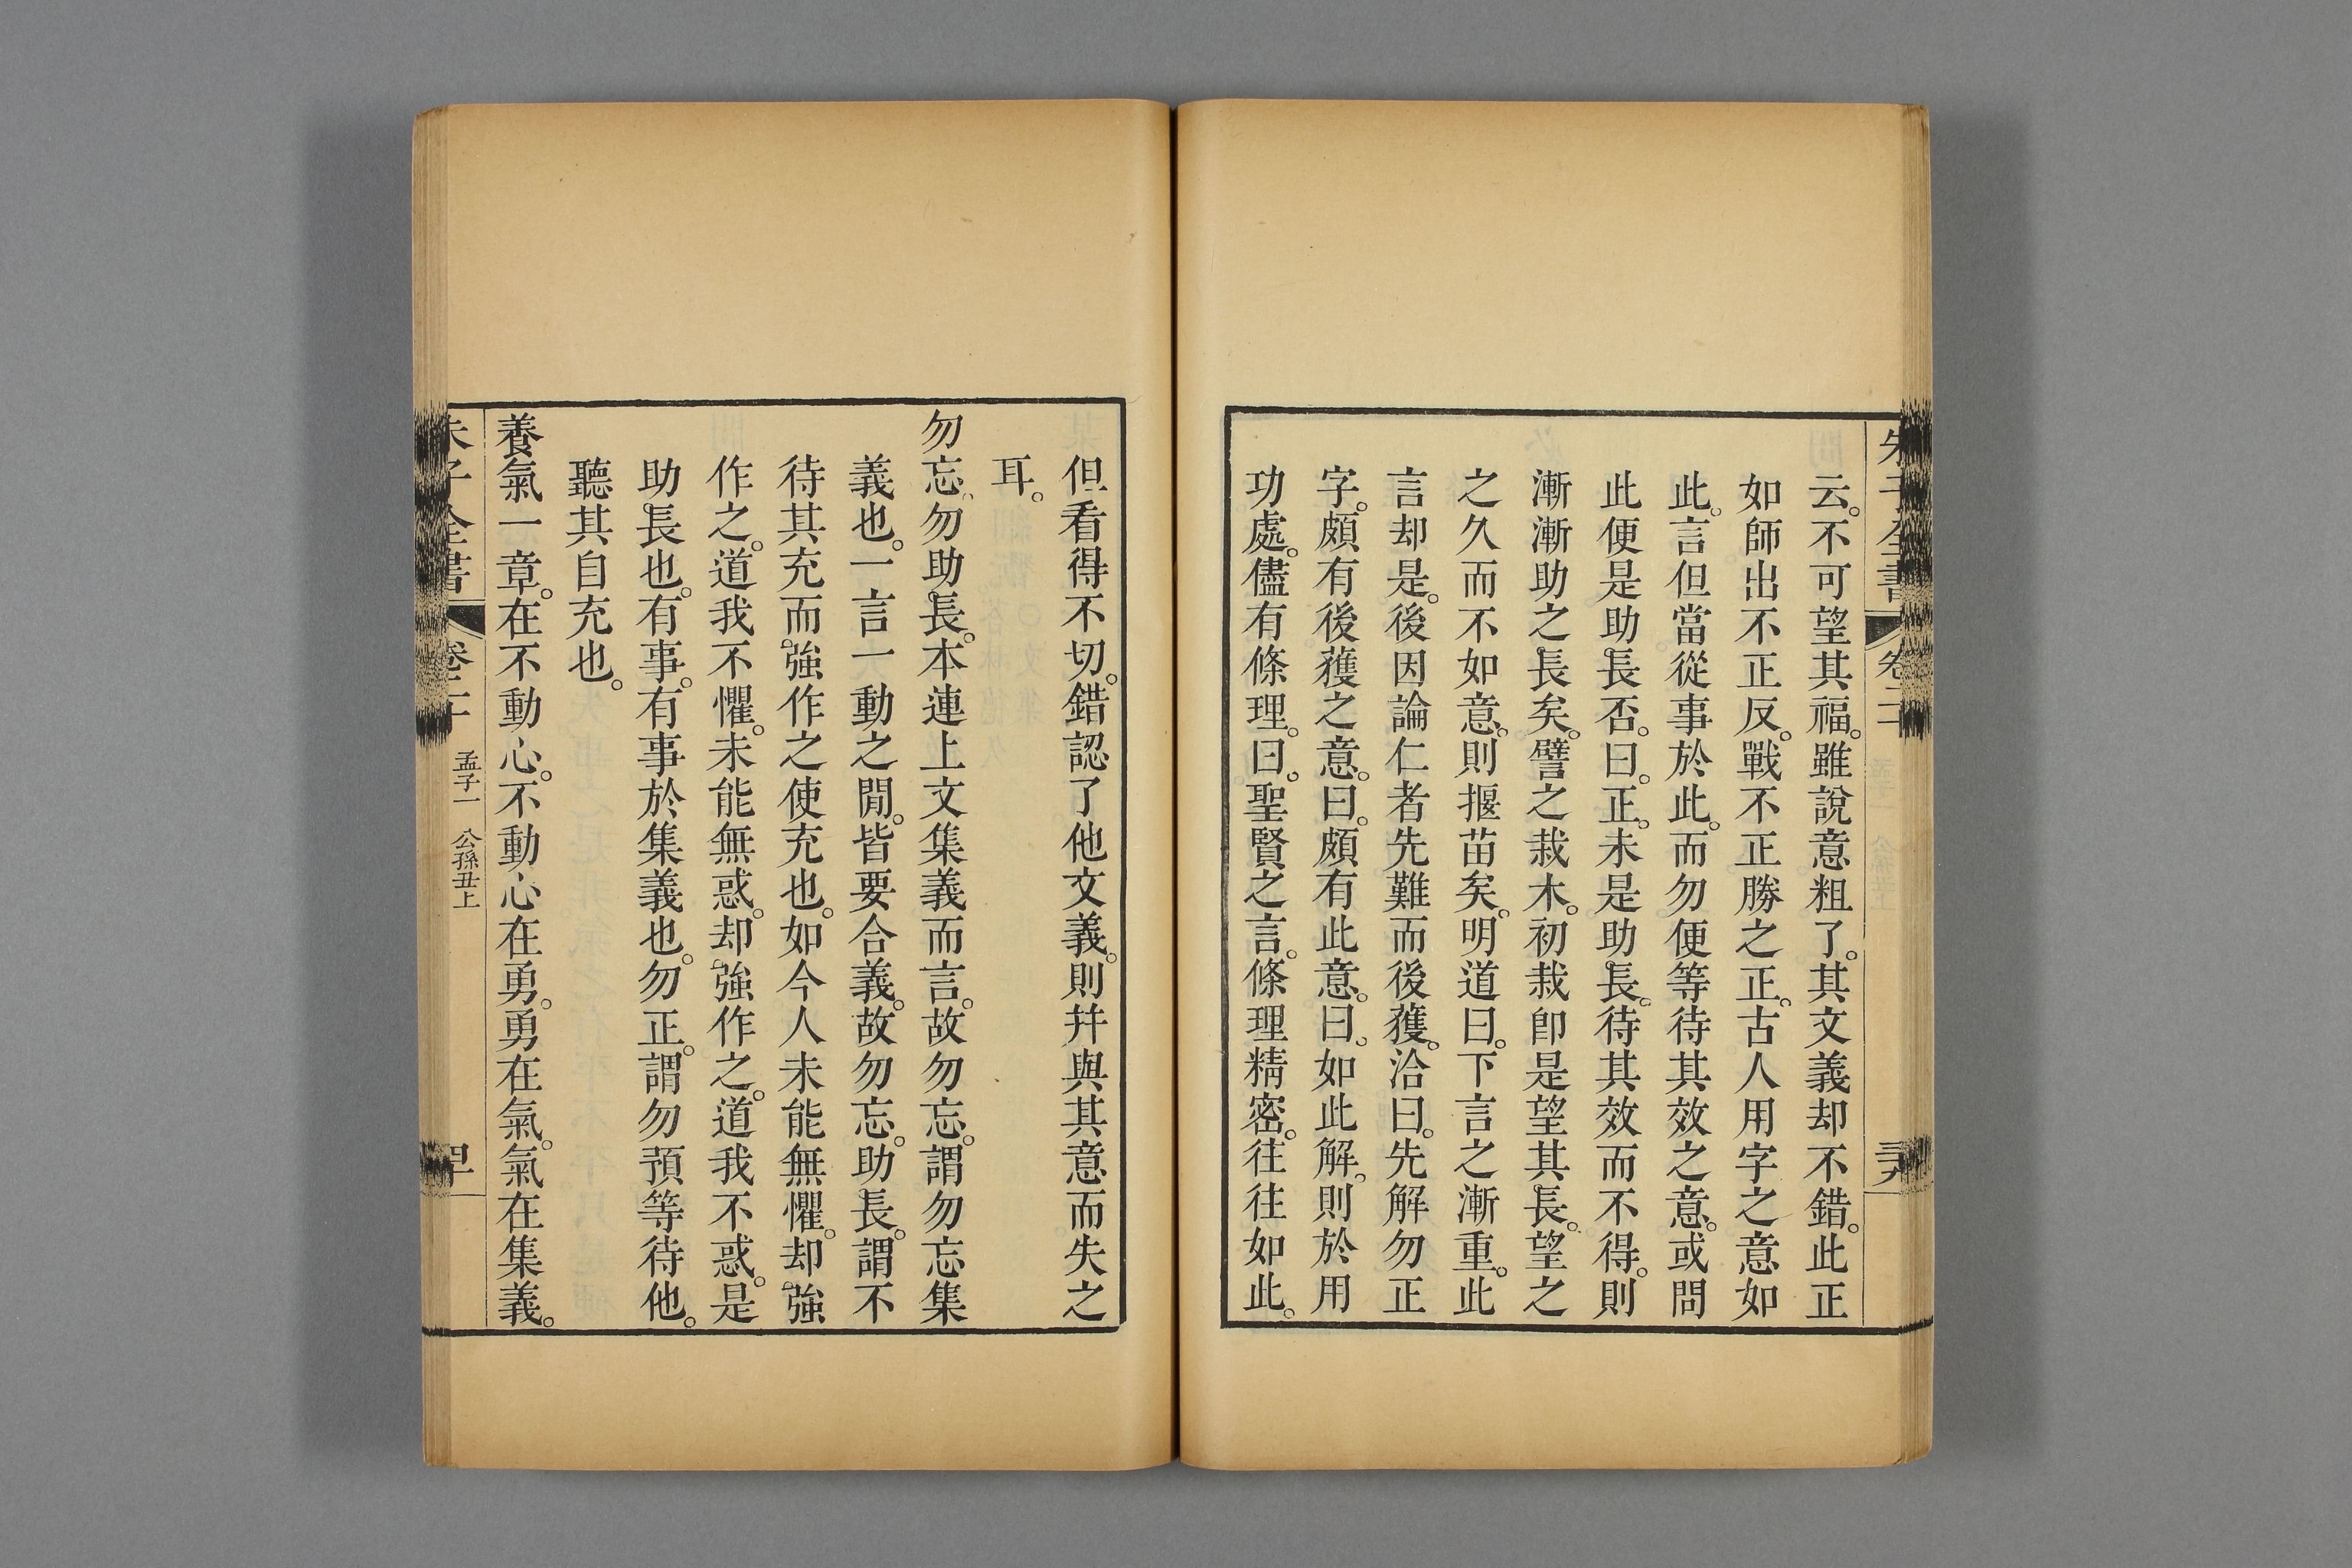 朱子全書 卷二十 三九
云。不可望其福。雖說意粗了。其文義却不錯。此正
如師出不正反。戰不正勝之正。古人用字之意如
此。言但當從事於此。而勿便等待其效之意。或問
此便是助長否。曰。正。未是助長。待其效而不得。則
漸漸助之長矣。譬之栽木。初栽卽是望其長。望之
之久而不如意。則揠苗矣。明道曰。下言之漸重。此
言却是。後因論仁者先難而後獲。洽曰。先解勿正
字。頗有後獲之意。曰。頗有此意。曰。如此解。則於用
功處。儘有條理。曰。聖賢之言。條理精密。往往如此。
但看得不切。錯認了他文義。則幷與其意而失之
耳。
勿忘。勿助長。本連上文集義而言。故勿忘。謂勿忘集
義也。一言一動之閒。皆要合義。故勿忘。助長。謂不
待其充而強作之使充也。如今人未能無懼。却強
作之。道我不懼。未能無惑。却強作之。道我不惑。是
助長也。有事。有事於集義也。勿正。謂勿預等待他。
聽其自充也。
養氣一章。在不動心。不動心在勇。勇在氣。氣在集義。
朱子全書 卷二十 孟子一 公孫丑上